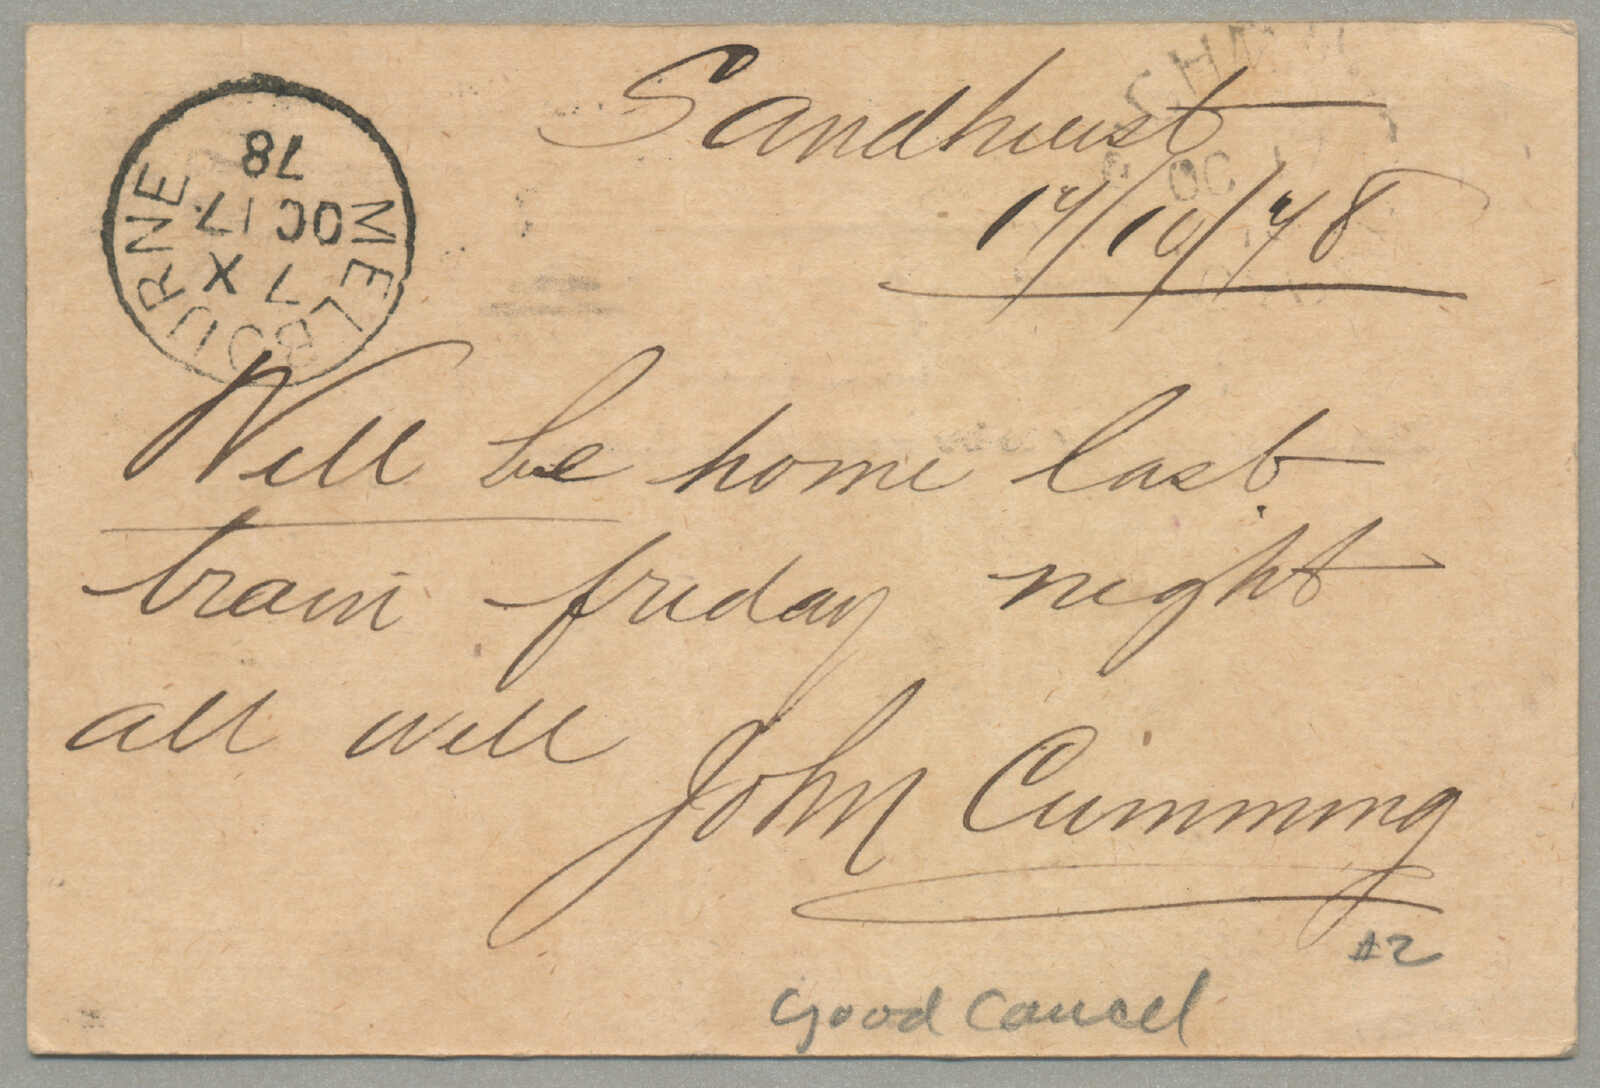 Sandhurst
17/10/78
MELBOURNE
7 X
OC 17
78
OC 17
Will be home last
train friday night
all well
John Cumming
#2
Good Cancel